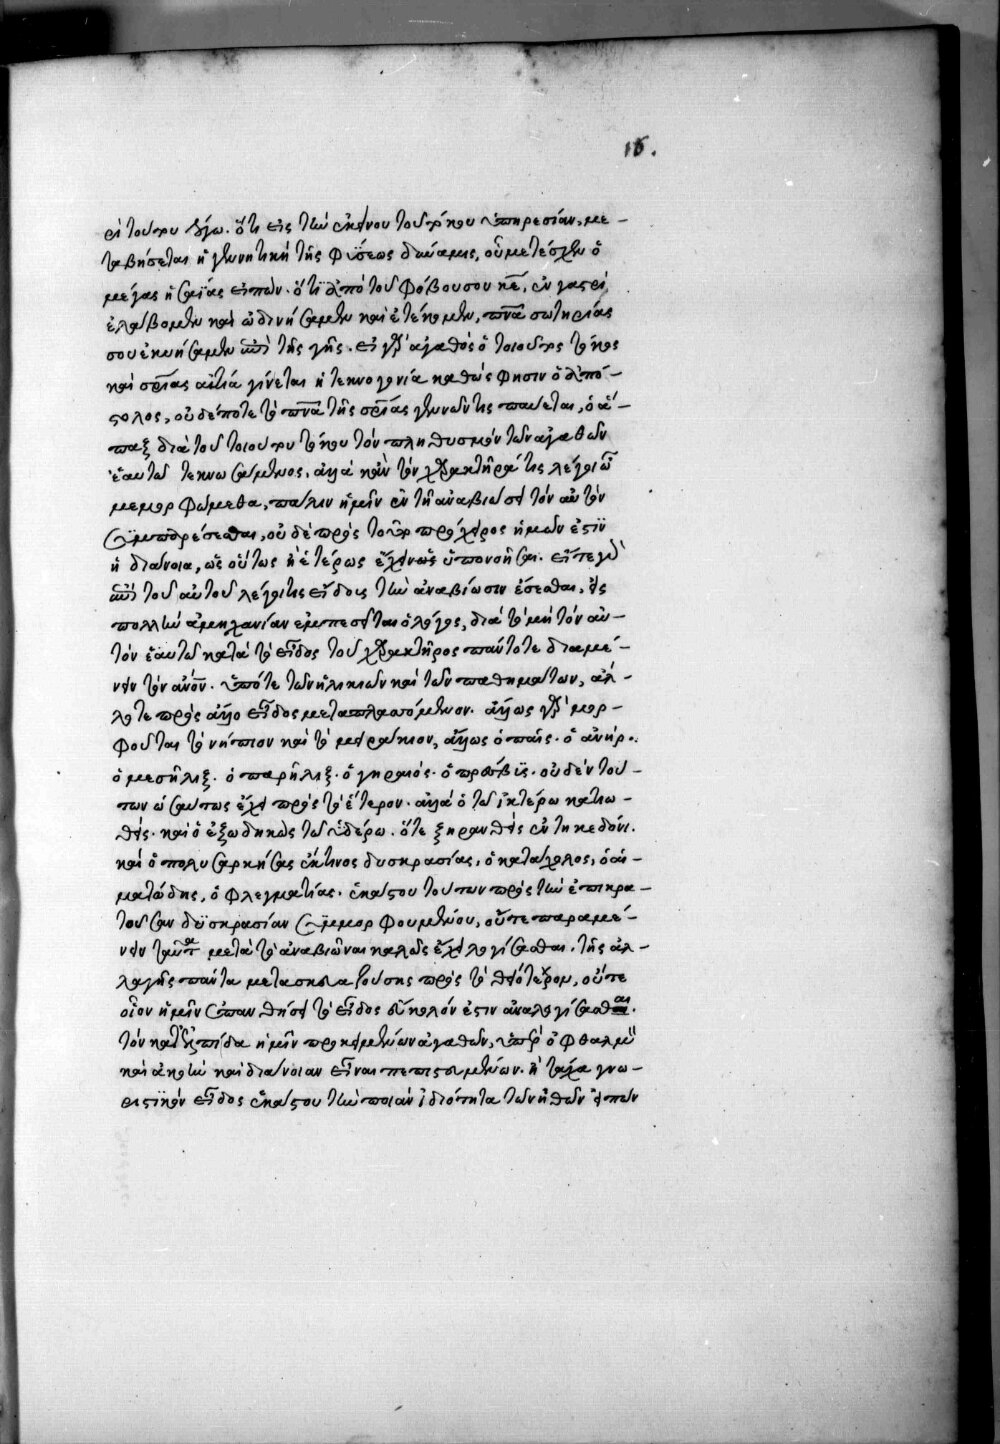 15.
ρὶ τούτου λέγω. ὅτι εἰς τὴν ἐκείνου τοῦ τόκου ὑπηρεσίαν, με-
ταβήσεται ἡ γεννητικὴ τῆς φύσεως δύναμις, οὗ μετέσχεν ὁ
μέγας ἡσαΐας εἰπών. ὅτι ἀπὸ τοῦ φόβου σου κε, ἐν γαστρὶ
ἐλάβομεν καὶ ὠδινήσαμεν καὶ ἐτέκομεν, πνα σωτηρίας
σου ἐκυήσαμεν ἐπὶ τῆς γῆς. εἰ γὰρ ἀγαθὸς ὁ τοιοῦτος τόκος
καὶ σρίας αἰτία γίνεται ἡ τεκνογονία καθώς φησιν ὁ ἀπό-
στολος, οὐδέποτε τὸ πνα τῆς σρίας γεννῶν τις παύεται, ὁ ἅ-
παξ διὰ τοῦ τοιούτου τόκου τὸν πληθυσμὸν τῶν ἀγαθῶν
ἑαυτῷ τεκνωσάμενος. ἀλλὰ κἂν τὸν χαρακτῆρά τις λέγοι ᾧ
μεμορφώμεθα, πάλιν ἡμῖν ἐν τῇ ἀναβιώσει τὸν αὐτὸν
συμπορεύεσθαι, οὐδὲ πρὸς τοῦτο πρόχειρος ἡμῶν ἐστὶν
ἡ διάνοια, ὡς οὕτως ἢ ἑτέρως ἔχειν ὑπονοῆσαι. εἴτε γὰρ
ἐπὶ τοῦ αὐτοῦ λέγοι τις εἴδους τὴν ἀναβίωσιν ἔσεσθαι, εἰς
πολλὴν ἀμηχανίαν ἐμπεσεῖται ὁ λόγος, διὰ τὸ μὴ τὸν αὐ-
τὸν ἑαυτῷ κατὰ τὸ εἶδος τοῦ χαρακτῆρος πάντοτε διαμέ-
νειν τὸν ἄνον. ὑπό τε τῶν ἡλικιῶν καὶ τῶν παθημάτων, ἄλ-
λοτε πρὸς ἄλλο εἶδος μεταπλασσόμενον. ἄλλως γὰρ μορ-
φοῦται τὸ νήπιον καὶ τὸ μειράκιον, ἄλλως ὁ παῖς. ὁ ἀνήρ.
ὁ μεσῆλιξ. ὁ παρῆλιξ. ὁ γηραιός. ὁ πρεσβύς. οὐδὲν τού-
των ὡσαύτως ἔχει πρὸς τὸ ἕτερον. ἀλλὰ ὁ τῷ ἰκτέρῳ κατιω-
θείς. καὶ ὁ ἐξῳδηκὼς τῷ ὑδέρῳ. ὅ τε ξηρανθεὶς ἐν τηκεδόνι.
καὶ ὁ πολυσαρκήσας ἔκ τινος δυσκρασίας, ὁ κατάχολος, ὁ αἱ-
ματώδης, ὁ φλεγματίας. ἑκάστου τούτων πρὸς τὴν ἐπικρα-
τοῦσαν δυσκρασίαν συμμορφουμένου, οὔτε παραμέ-
νειν ταῦτα μετὰ τὸ ἀναβιῶναι καλῶς ἔχει λογίσασθαι. τῆς ἀλ-
λαγῆς πάντα μετασκευαζούσης πρὸς τὸ θειότερον, οὔτε
οἷον ἡμῖν ἐπανθήσει τὸ εἶδος εὔκολόν ἐστιν ἀναλογίσασθαι.
τῶν κατ' ἐλπίδα ἡμῖν προκειμένων ἀγαθῶν, ὑπὲρ ὀφθαλμὸν
καὶ ἀκοὴν καὶ διάνοιαν εἶναι πεπιστευμένων. ἢ τάχα γνω-
ριστικὸν εἶδος ἑκάστου τὴν ποιὰν ἰδιότητα τῶν ἠθῶν εἰπὼν